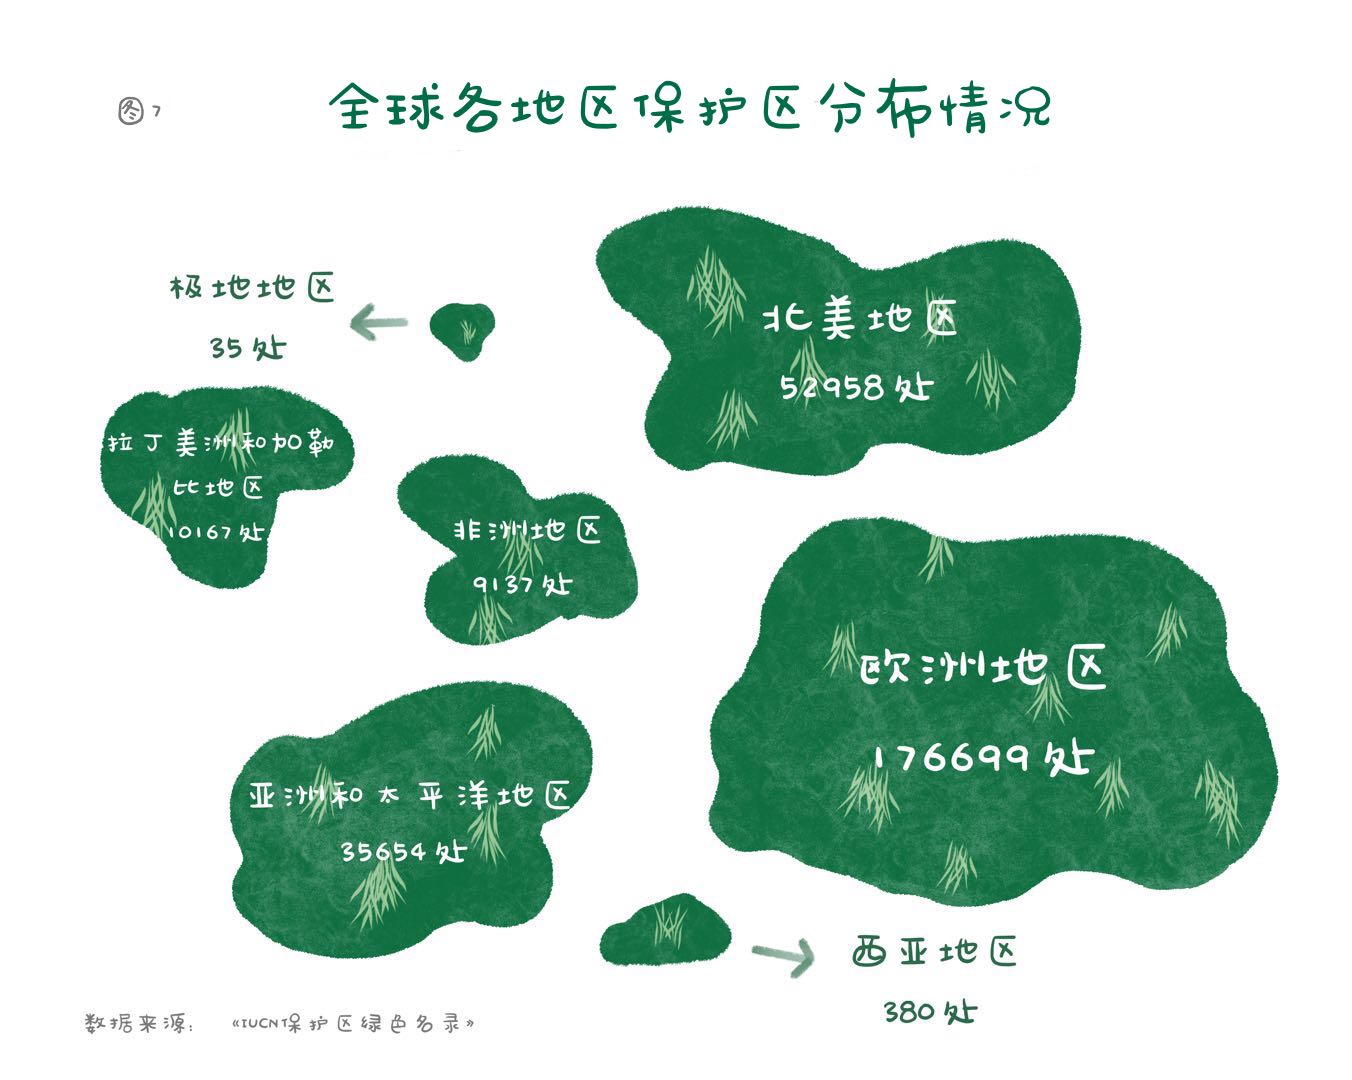 图7
全球各地区保护区分布情况
极地地区
35处
北美地区
52958处
拉丁美洲和加勒
比地区
10167处
非洲地区
9137处
欧洲地区
176699处
亚洲和太平洋地区
35654处
西亚地区
380处
数据来源: 《IUCN保护区绿色名录》